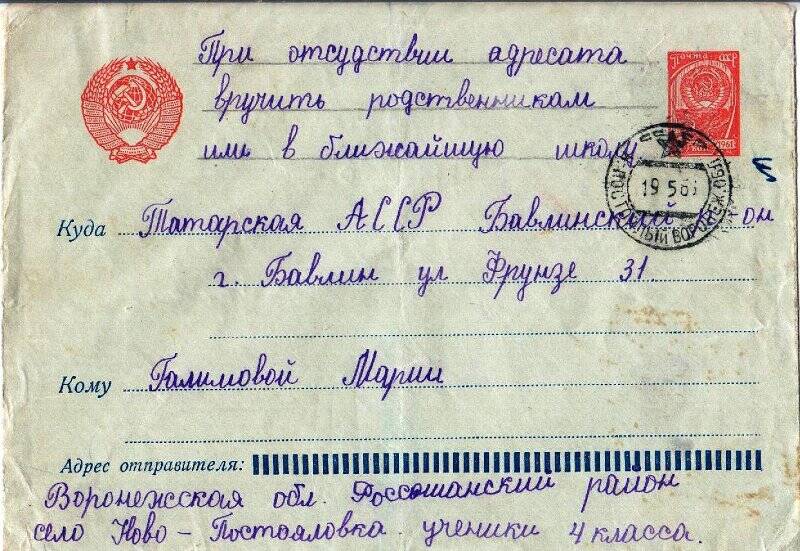 При отсудствии адресата
вручить родственникам
или в ближайшую школу
Почта СССР
1961
19 5 6
Куда Татарская АССР Бавлинский р-он
г. Бавлин ул Фрунзе 31.
Кому Галимовой Марии
Адрес отправителя:
Воронежская обл. Россошанский район
село Ново – Постояловка ученики 4 класса.